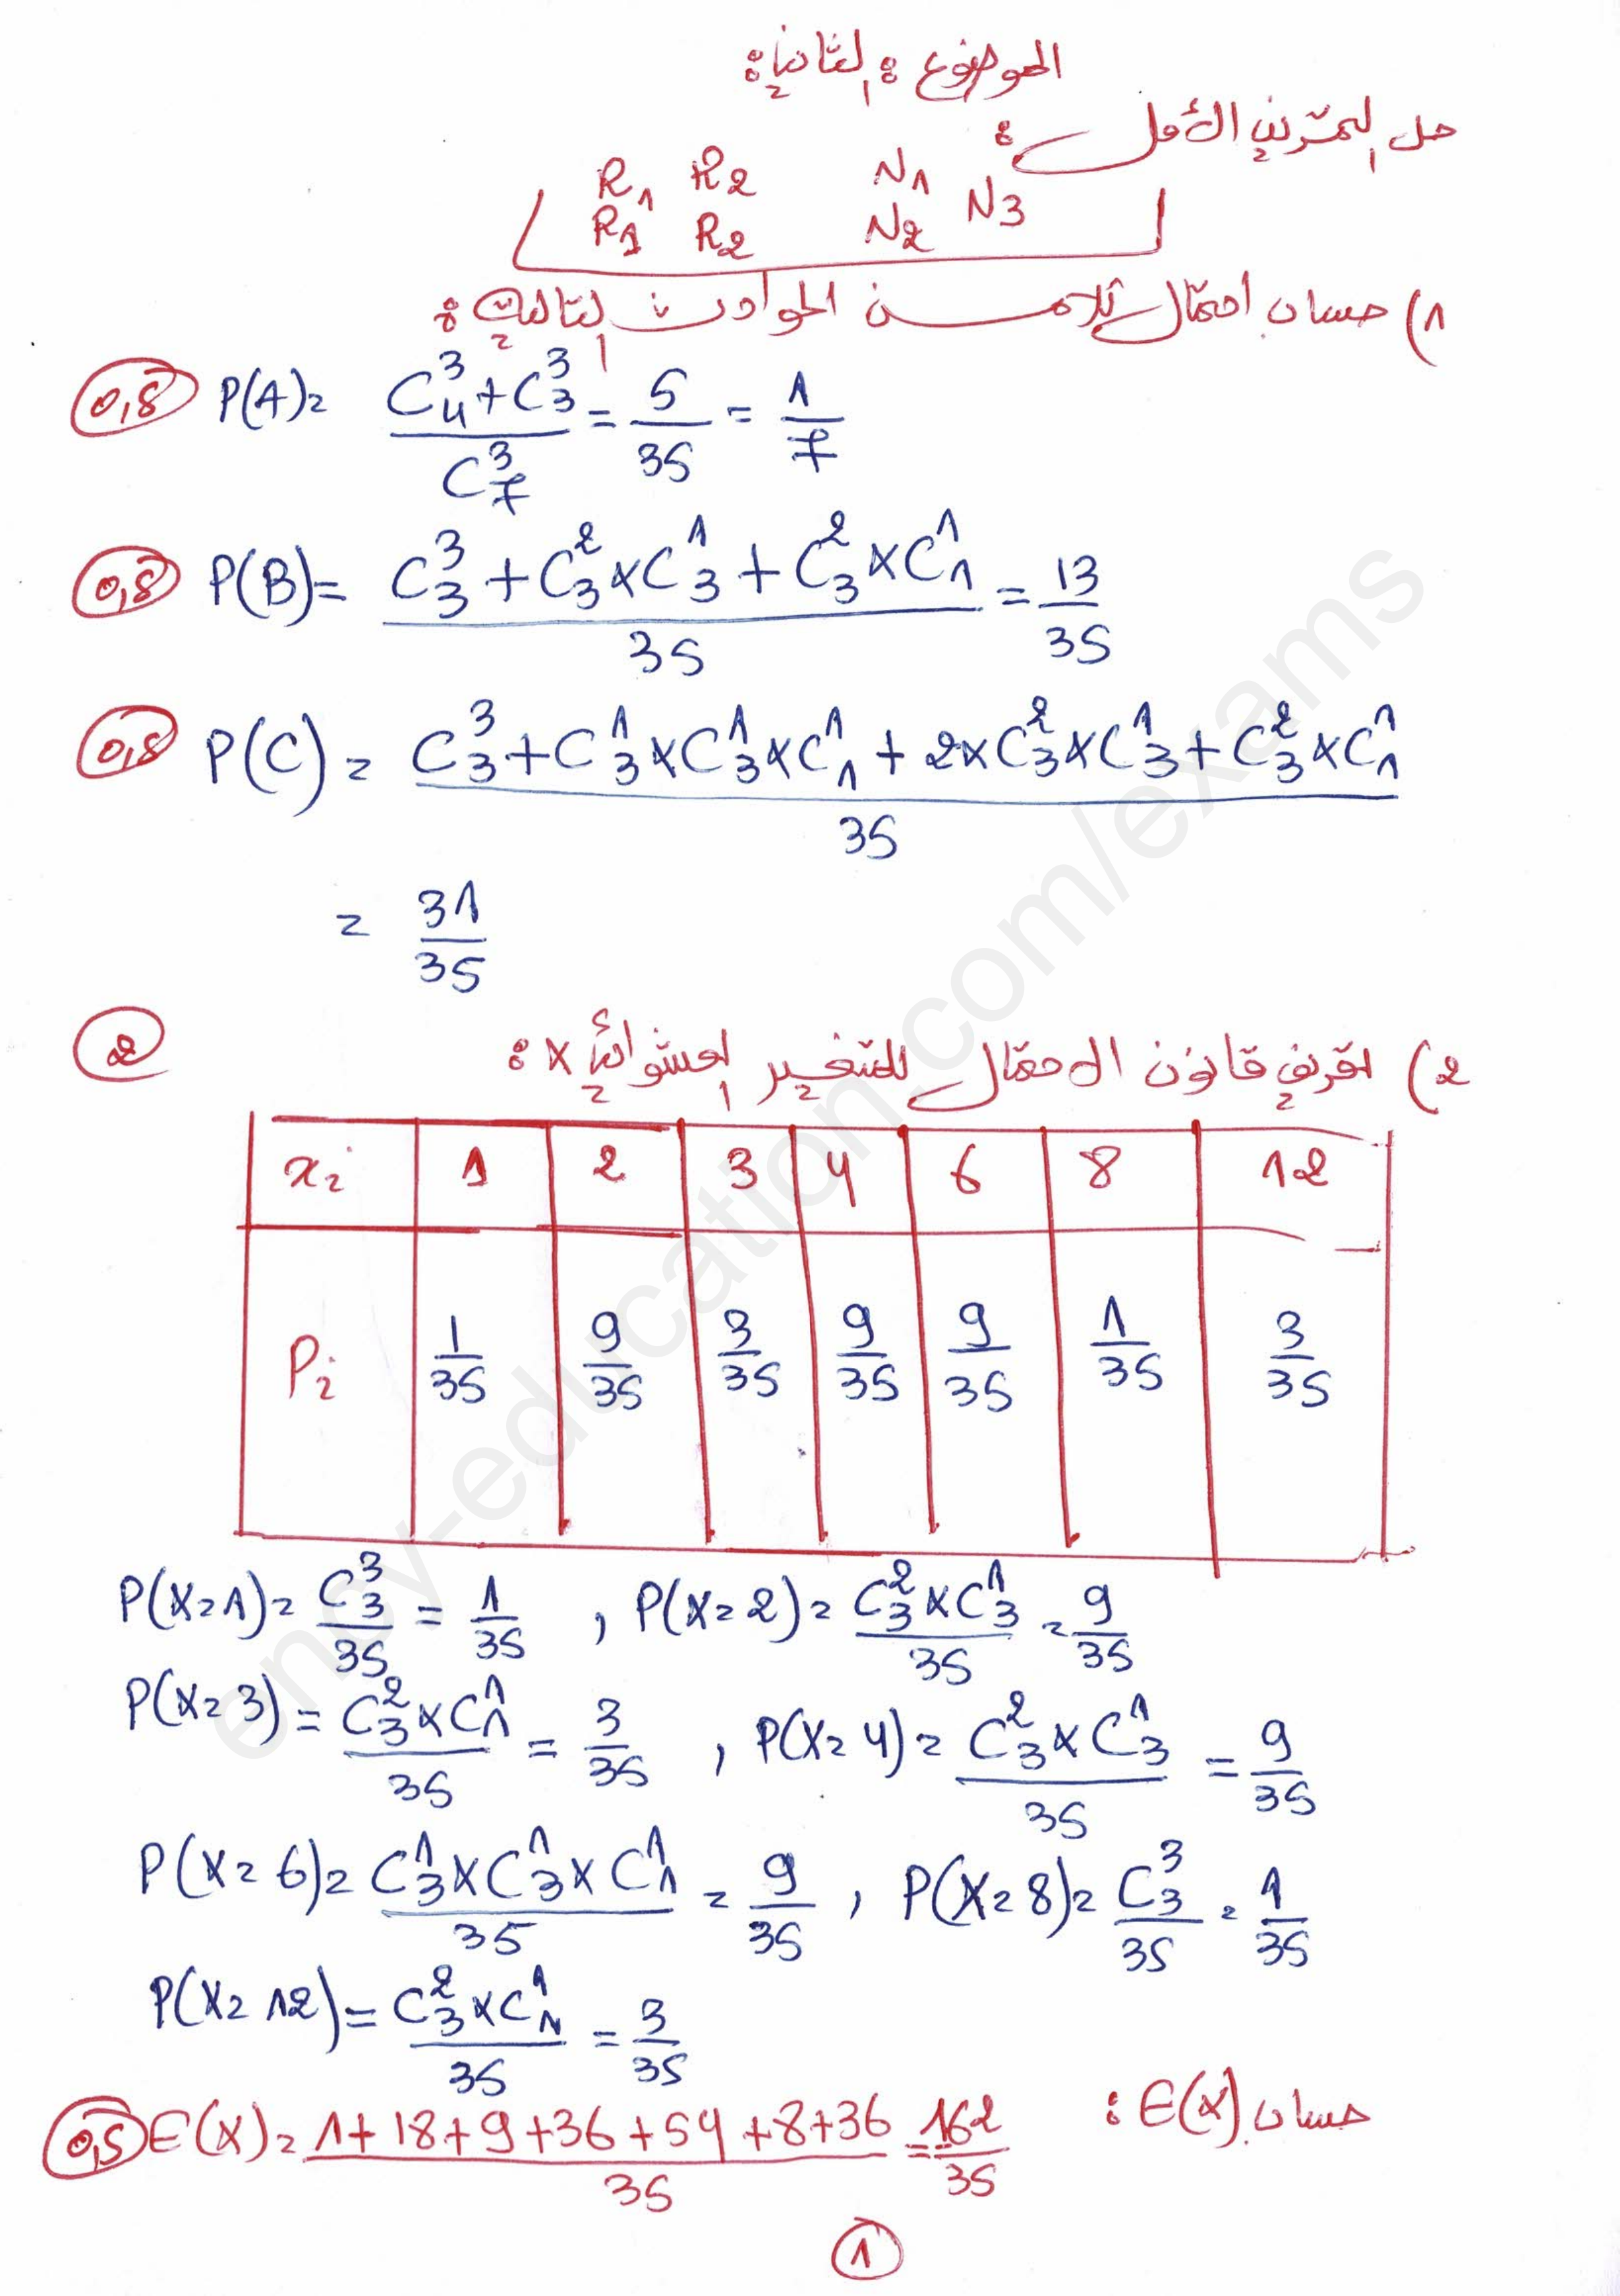 الموضوع الثاني:
حل التمرين الأول:
R1 R2 N1 N3
R1 R2 N2
1) حساب احتمال كلا من الحوادث التالية:
0,5 P(A) = (C_4^3 + C_3^3) / C_7^3 = 5/35 = 1/7
0,5 P(B) = (C_3^3 + C_3^2 × C_3^1 + C_3^2 × C_1^1) / 35 = 13/35
0,5 P(C) = (C_3^3 + C_3^1 × C_3^1 × C_1^1 + 2 × C_3^2 × C_3^1 + C_3^2 × C_1^1) / 35
= 31/35
2) تعريف قانون الاحتمال للمتغير العشوائي X: 2
xi 1 2 3 4 6 8 12
Pi 1/35 9/35 3/35 9/35 9/35 1/35 3/35
P(X=1) = C_3^3 / 35 = 1/35 , P(X=2) = C_3^2 × C_3^1 / 35 = 9/35
P(X=3) = C_3^2 × C_1^1 / 35 = 3/35 , P(X=4) = C_3^2 × C_3^1 / 35 = 9/35
P(X=6) = C_3^1 × C_3^1 × C_1^1 / 35 = 9/35 , P(X=8) = C_3^3 / 35 = 1/35
P(X=12) = C_3^2 × C_1^1 / 35 = 3/35
حساب E(X):
0,5 E(X) = (1+18+9+36+54+8+36) / 35 = 162/35
1
ency-education.com/exams